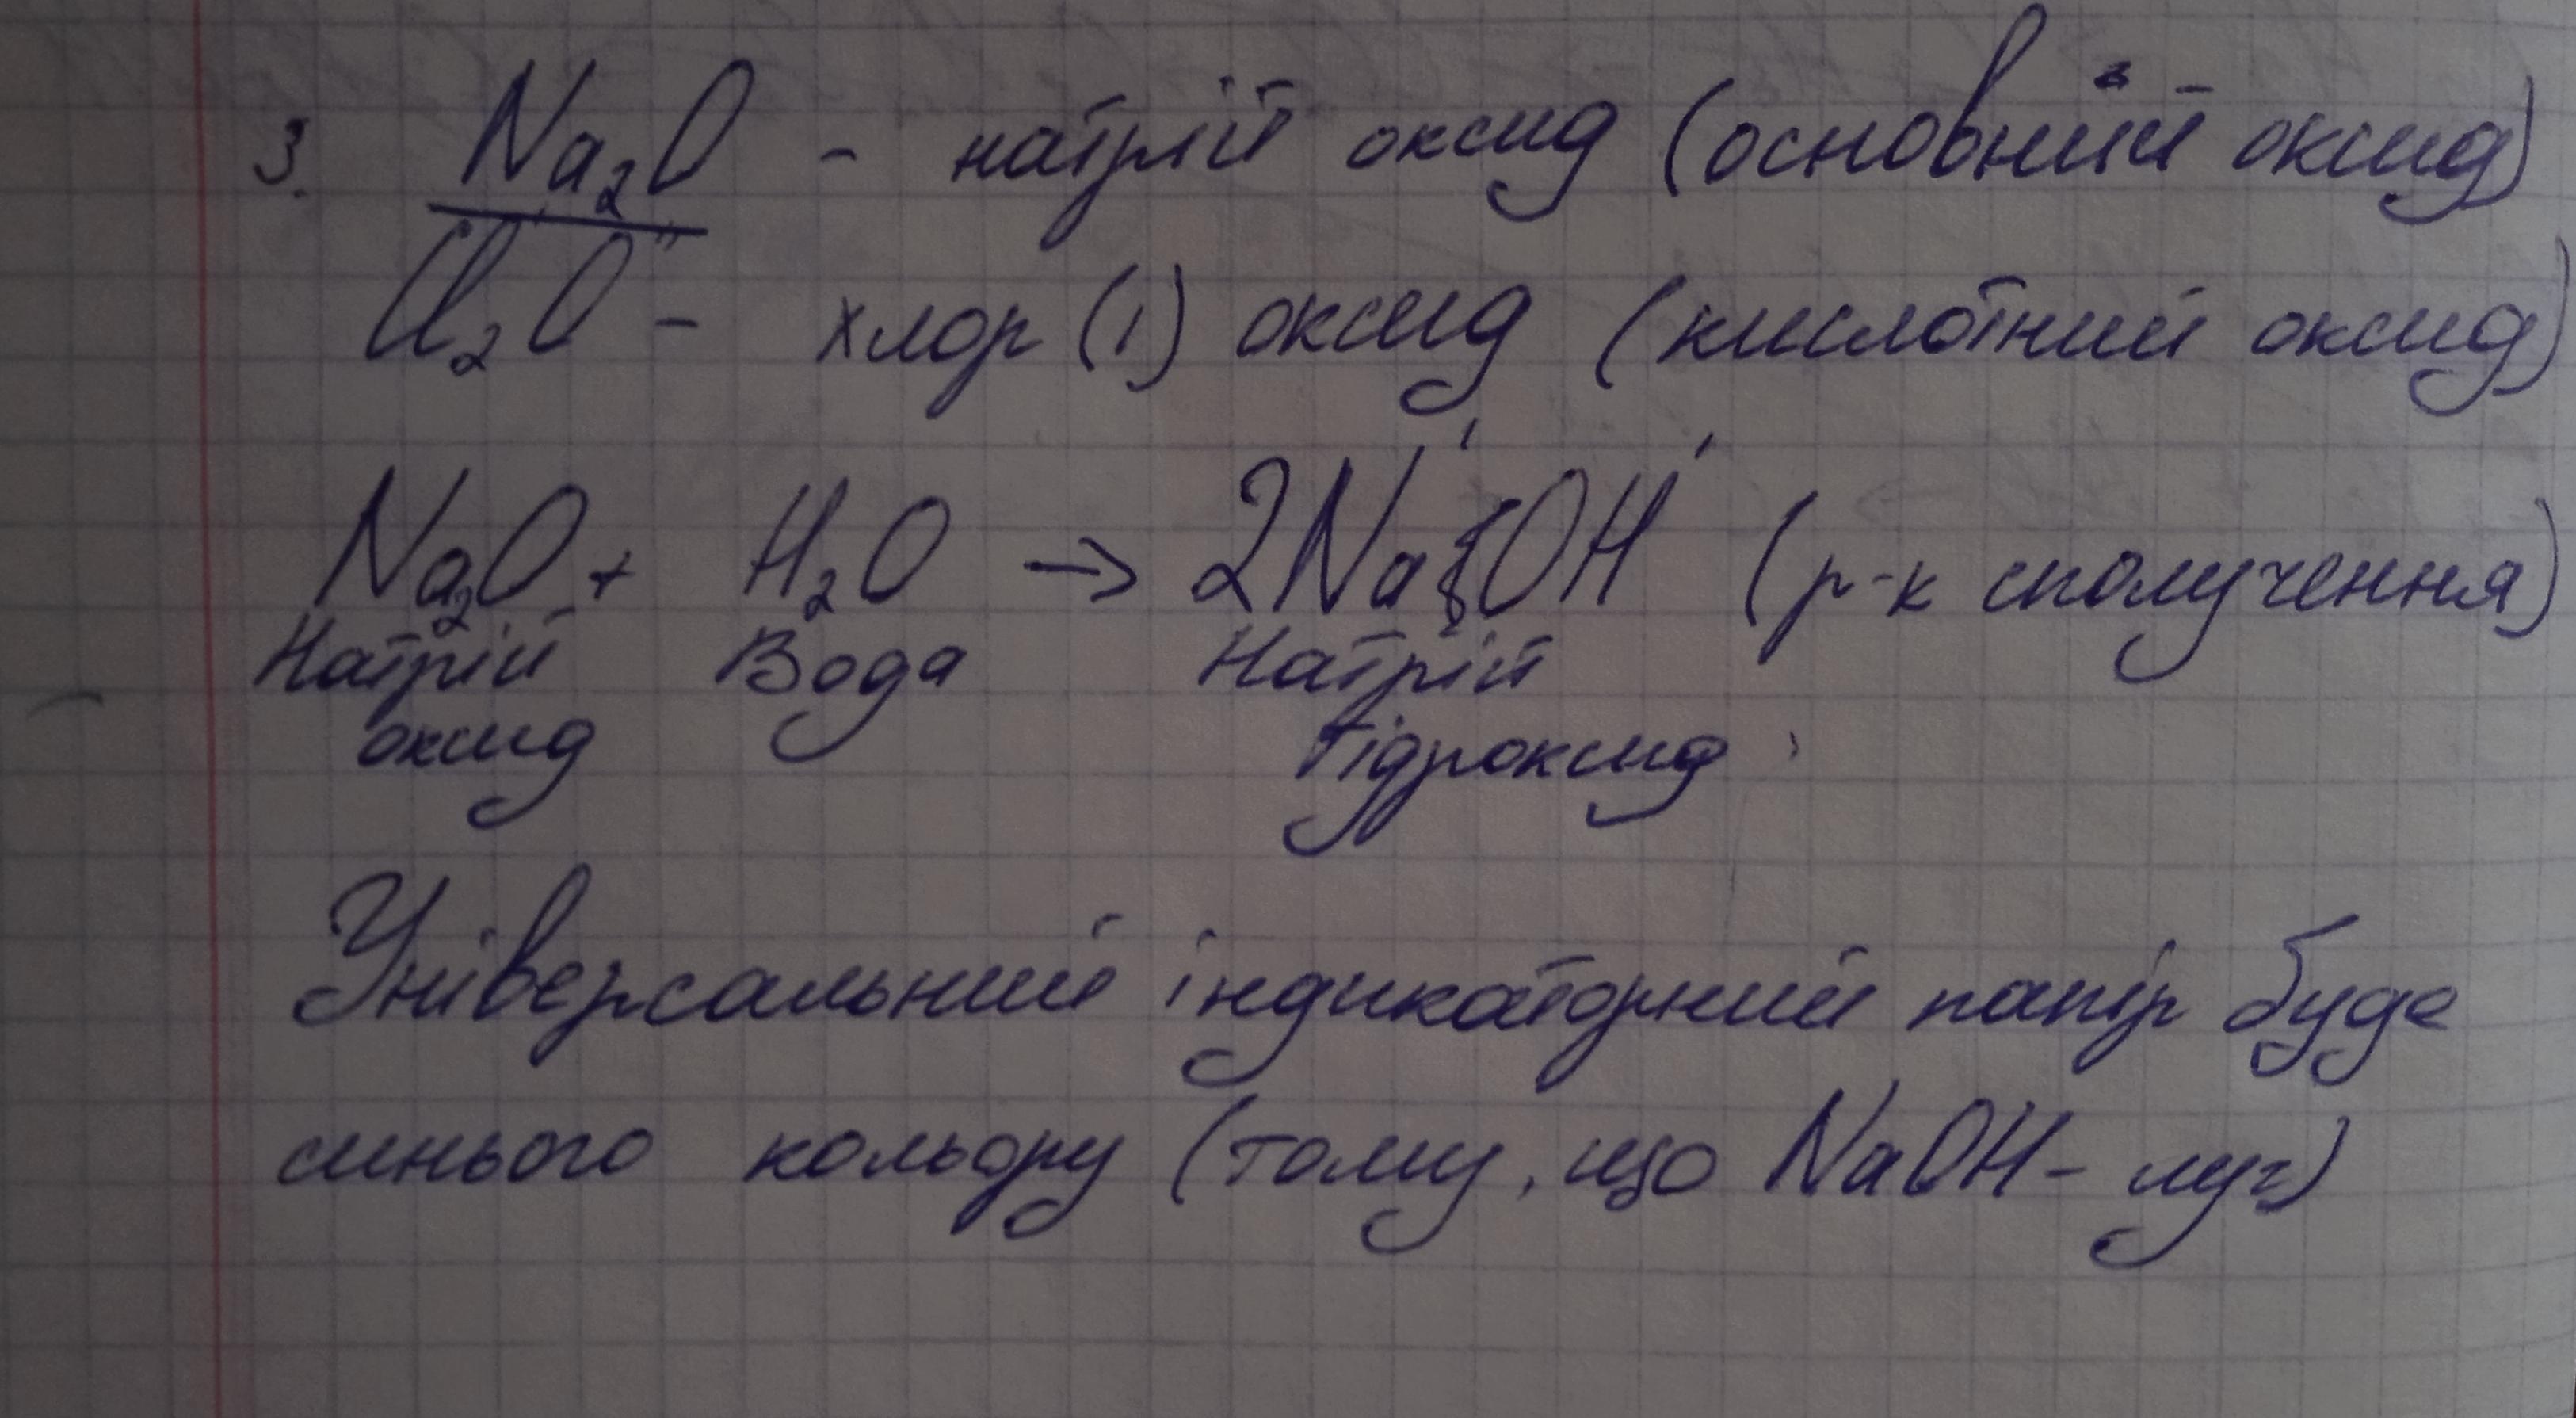 3. Na₂O - натрій оксид (основний оксид)
Cl₂O - хлор (I) оксид (кислотний оксид)
Na₂O + H₂O → 2NaOH (р-к сполучення)
Натрій Вода Натрій
оксид гідроксид
Універсальний індикаторний папір буде
синього кольору (тому, що NaOH - луг)